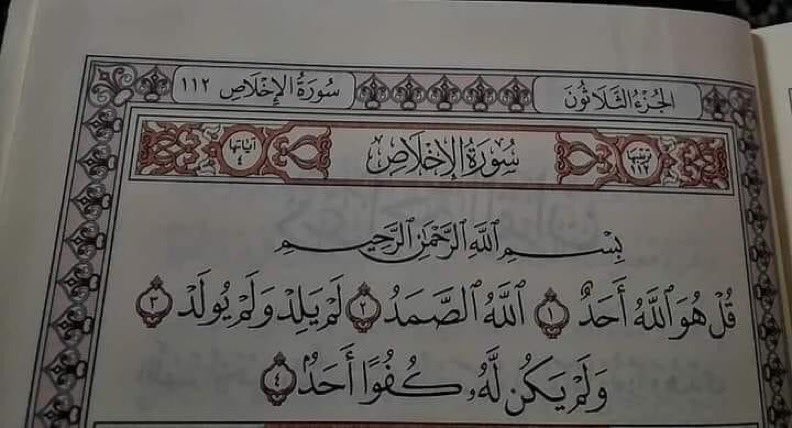 الجُزْءُ الثَّلَاثُونَ سُورَةُ الإِخْلَاصِ ١١٢
ترتيبها ١١٢ سُورَةُ الإِخْلَاصِ آياتها ٤
بِسْمِ ٱللَّهِ ٱلرَّحْمَٰنِ ٱلرَّحِيمِ
قُلْ هُوَ ٱللَّهُ أَحَدٌ ١ ٱللَّهُ ٱلصَّمَدُ ٢ لَمْ يَلِدْ وَلَمْ يُولَدْ ٣
وَلَمْ يَكُن لَّهُۥ كُفُوًا أَحَدٌۢ ٤